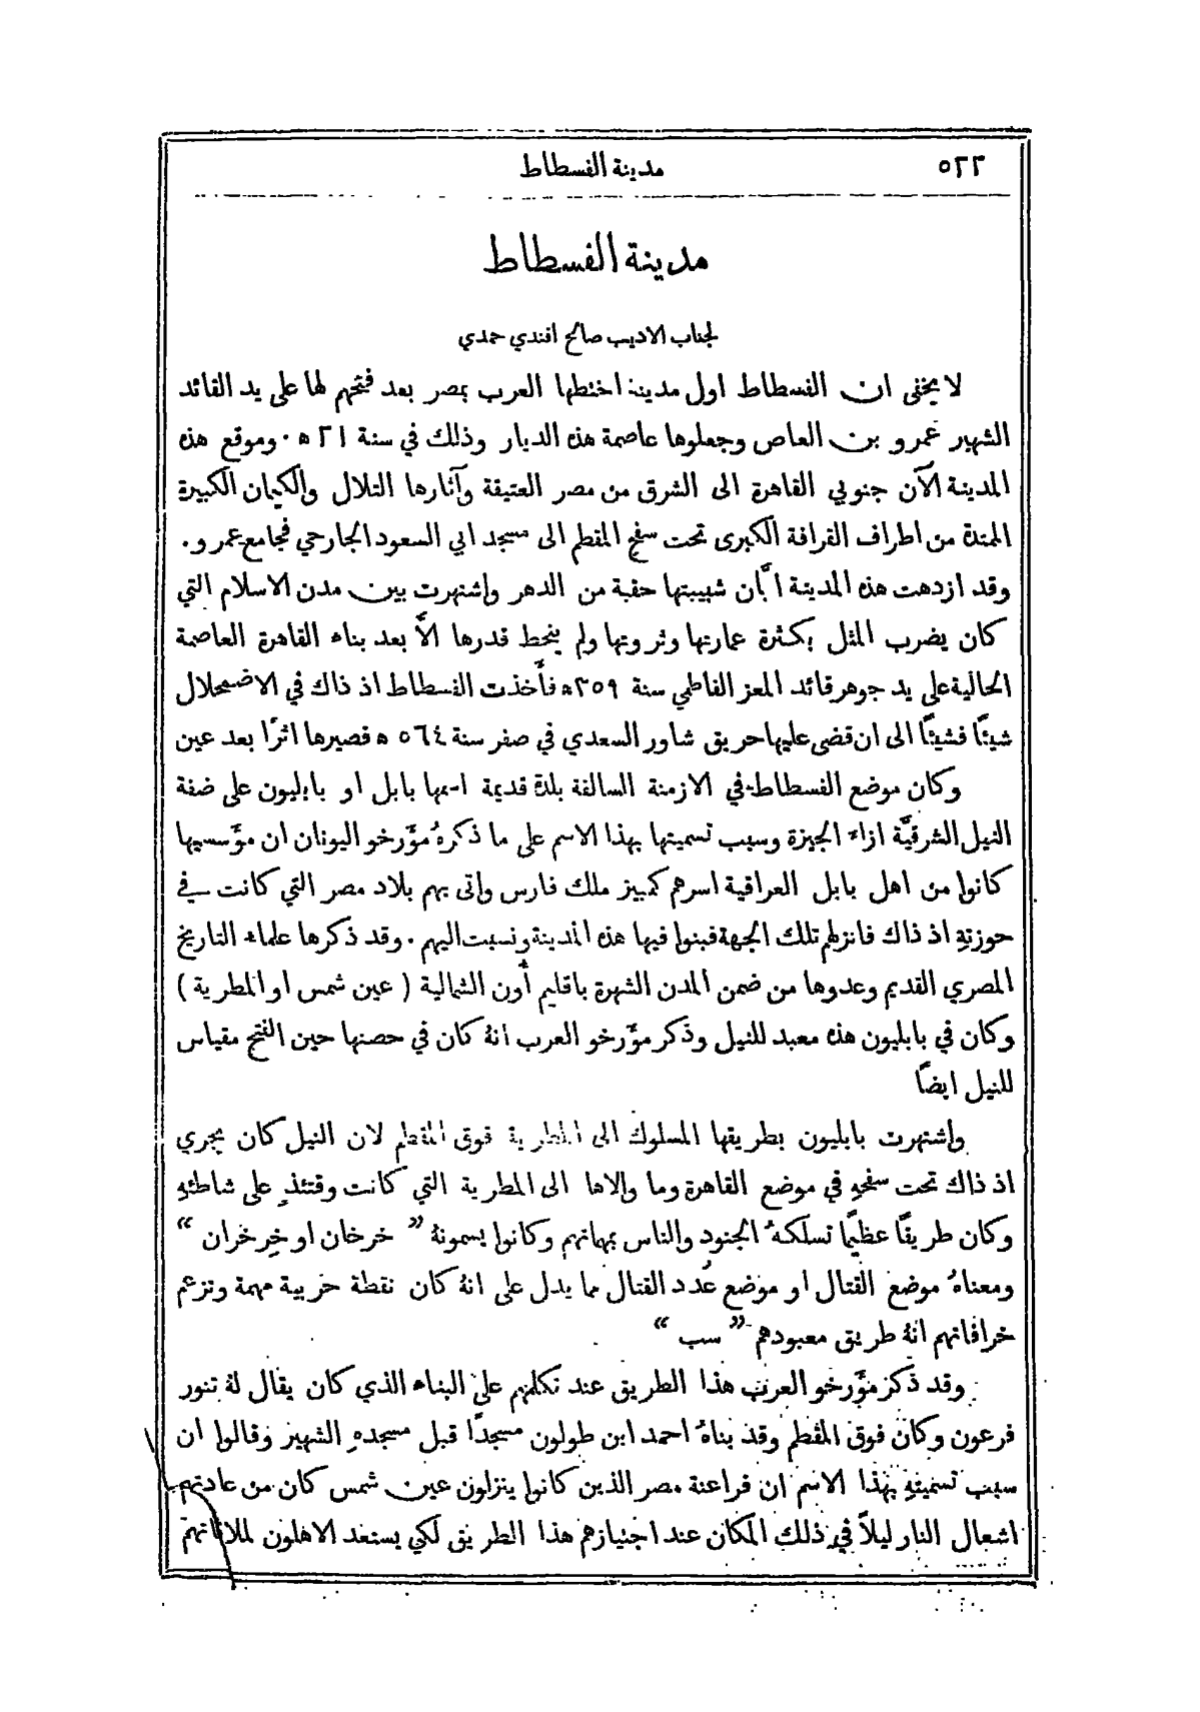 ٥٢٢
مدينة الفسطاط
مدينة الفسطاط
لجناب الاديب صالح افندي حمدي
لا يخفى ان الفسطاط اول مدينة اختطها العرب بمصر بعد فتحهم لها على يد القائد
الشهير عمرو بن العاص وجعلوها عاصمة هذه الديار وذلك في سنة ٢١ ه٠ وموقع هذه
المدينة الآن جنوبي القاهرة الى الشرق من مصر العتيقة وآثارها التلال والكيمان الكبيرة
الممتدة من اطراف القرافة الكبرى تحت سفح المقطم الى مسجد ابي السعود الجارحي فجامع عمرو.
وقد ازدهت هذه المدينة ابَّان شبيبتها حقبة من الدهر واشتهرت بين مدن الاسلام التي
كان يضرب المثل بكثرة عمارتها وثروتها ولم ينحط قدرها الاَّ بعد بناء القاهرة العاصمة
الحالية على يد جوهر قائد المعز الفاطمي سنة ٣٥٩ه فأخذت الفسطاط اذ ذاك في الاضمحلال
شيئًا فشيئًا الى ان قضى عليها حريق شاور السعدي في صفر سنة ٥٦٤ ه فصيرها اثرًا بعد عين
وكان موضع الفسطاط في الازمنة السالفة بلدة قديمة اسمها بابل او بابليون على ضفة
النيل الشرقيَّة ازاء الجيزة وسبب تسميتها بهذا الاسم على ما ذكرهُ مؤَرخو اليونان ان مؤَسسيها
كانوا من اهل بابل العراقية اسرهم كمبيز ملك فارس واتى بهم بلاد مصر التي كانت في
حوزتهِ اذ ذاك فانزلهم تلك الجهة فبنوا فيها هذه المدينة ونسبت اليهم ٠ وقد ذكرها علماء التاريخ
المصري القديم وعدوها من ضمن المدن الشهرة باقليم أون الشمالية ( عين شمس او المطرية )
وكان في بابليون هذه معبد للنيل وذكر مؤَرخو العرب انهُ كان في حصنها حين الفتح مقياس
للنيل ايضًا
واشتهرت بابليون بطريقها المسلوك الى المطرية فوق المقطم لان النيل كان يجري
اذ ذاك تحت سفحهِ في موضع القاهرة وما والاها الى المطرية التي كانت وقتئذٍ على شاطئهِ
وكان طريقًا عظيمًا تسلكهُ الجنود والناس بمهاتهم وكانوا يسمونهُ ” خرخان او خِرخران “
ومعناهُ موضع القتال او موضع عُدد القتال مما يدل على انهُ كان نقطة حربية مهمة وتزعم
خرافاتهم انهُ طريق معبودهم ” سب “
وقد ذكر مؤَرخو العرب هذا الطريق عند تكلمهم على البناء الذي كان يقال لهُ تنور
فرعون وكان فوق المقطم وقد بناهُ احمد ابن طولون مسجدًا قبل مسجدهِ الشهير وقالوا ان
سبب تسميتهِ بهذا الاسم ان فراعنة مصر الذين كانوا ينزلون عين شمس كان من عادتهم
اشعال النار ليلاً في ذلك المكان عند اجتيازهم هذا الطريق لكي يستعد الاهلون لملاقاتهم